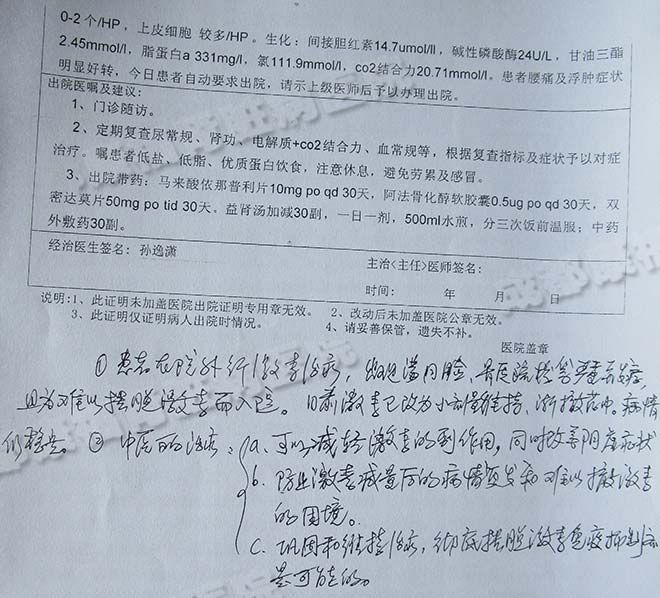 0-2个/HP，上皮细胞 较多/HP。生化：间接胆红素14.7umol/ll，碱性磷酸酶24U/L，甘油三酯
2.45mmol/l，脂蛋白a 331mg/l，氯111.9mmol/l，co2结合力20.71mmol/l。患者腰痛及浮肿症状
明显好转，今日患者自动要求出院，请示上级医师后予以办理出院。
出院医嘱及建议：
1、门诊随访。
2、定期复查尿常规、肾功、电解质+co2结合力、血常规等，根据复查指标及症状予以对症
治疗。嘱患者低盐、低脂、优质蛋白饮食，注意休息，避免劳累及感冒。
3、出院带药：马来酸依那普利片10mg po qd 30天，阿法骨化醇软胶囊0.5ug po qd 30天，双
密达莫片50mg po tid 30天。益肾汤加减30副，一日一剂，500ml水煎，分三次饭前温服；中药
外敷药30副。
经治医生签名：孙逸潇
主治<主任>医师签名：
时间： 年 月 日
说明：1、此证明未加盖医院出院证明专用章无效。 2、改动后未加盖医院公章无效。
3、此证明仅证明病人出院时情况。 4、请妥善保管，遗失不补。
医院盖章
①患者在院外行激素治疗，出现满月脸、骨质疏松等
且为难以摆脱激素而入院。目前激素已改为小剂量维持、渐撤范中。病情
仍稳定。②中医的治疗：a、可以减轻激素的副作用，同时改善阴虚症状
b、防止激素减量后的病情复发和难以撤激素
的困境。
c、巩固和维持治疗，彻底摆脱激素免疫抑制
是可能的。